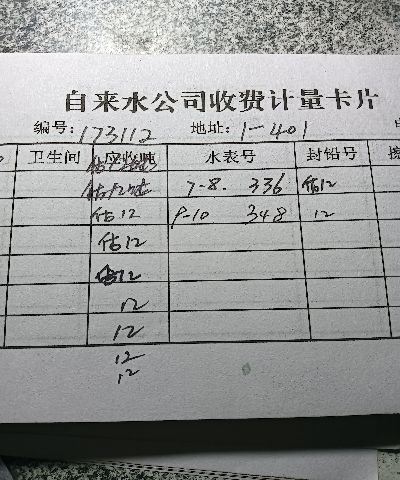 自来水公司收费计量卡片
编号: 173112 地址: 1-401
卫生间 应收吨 水表号 封铅号
估12吨 7-8. 336 估12
估12 9-10 348 12
估12
估12
12
12
12
12